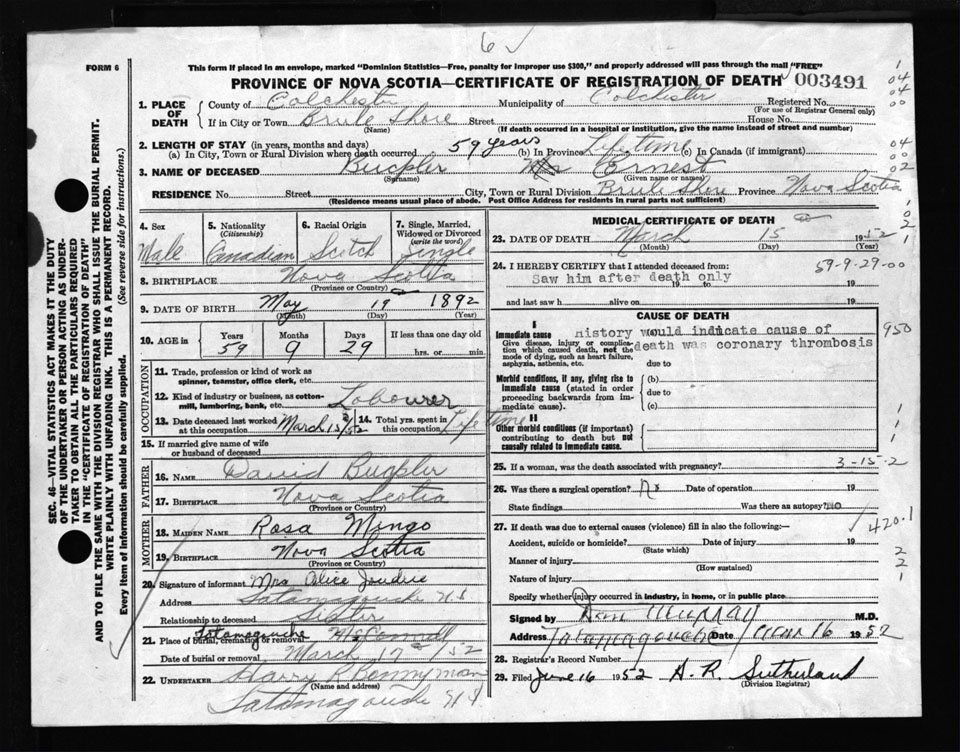 6 ✓
FORM 6
This form if placed in an envelope, marked "Dominion Statistics—Free, penalty for improper use $300," and properly addressed will pass through the mail "FREE"
PROVINCE OF NOVA SCOTIA—CERTIFICATE OF REGISTRATION OF DEATH 003491
SEC. 46—VITAL STATISTICS ACT MAKES IT THE DUTY
OF THE UNDERTAKER OR PERSON ACTING AS UNDER-
TAKER TO OBTAIN ALL THE PARTICULARS REQUIRED
IN THE "CERTIFICATE OF REGISTRATION OF DEATH"
AND TO FILE THE SAME WITH THE DIVISION REGISTRAR WHO SHALL ISSUE THE BURIAL PERMIT.
WRITE PLAINLY WITH UNFADING INK. THIS IS A PERMANENT RECORD.
Every item of information should be carefully supplied. (See reverse side for instructions.)
1. PLACE OF DEATH County of Colchester Municipality of Colchester Registered No.
(For use of Registrar General only)
If in City or Town Brule Shore Street House No.
(Name) (If death occurred in a hospital or institution, give the name instead of street and number)
2. LENGTH OF STAY (in years, months and days)
(a) In City, Town or Rural Division where death occurred 59 years (b) In Province Lifetime (c) In Canada (if immigrant)
3. NAME OF DECEASED Ernest
(Surname) (Given name or names)
RESIDENCE No. Street City, Town or Rural Division Brule Shore Province Nova Scotia
(Residence means usual place of abode. Post Office Address for residents in rural parts not sufficient)
4. Sex 5. Nationality (Citizenship) 6. Racial Origin 7. Single, Married, Widowed or Divorced (write the word)
Male Canadian Scotch Single
8. BIRTHPLACE Nova Scotia
(Province or Country)
9. DATE OF BIRTH May 19 1892
(Month) (Day) (Year)
10. AGE in Years Months Days If less than one day old
59 9 29 hrs. or min.
OCCUPATION
11. Trade, profession or kind of work as
spinner, teamster, office clerk, etc.
12. Kind of industry or business, as cotton-
mill, lumbering, bank, etc. Labourer
13. Date deceased last worked at this occupation March 15/52 14. Total yrs. spent in this occupation Lifetime
15. If married give name of wife
or husband of deceased
FATHER
16. NAME David
17. BIRTHPLACE Nova Scotia
(Province or Country)
MOTHER
18. MAIDEN NAME Rosa Mingo
19. BIRTHPLACE Nova Scotia
(Province or Country)
20. Signature of informant Mrs Alice Joudrie
Address Tatamagouche N S
Relationship to deceased Sister
21. Place of burial, cremation or removal Tatamagouche McConnell
Date of burial or removal March 17 /52
22. UNDERTAKER Harry Bonnyman
(Name and address)
Tatamagouche N S
MEDICAL CERTIFICATE OF DEATH
23. DATE OF DEATH March 15 1952
(Month) (Day) (Year)
24. I HEREBY CERTIFY that I attended deceased from: 59-9-29-00
Saw him after death only
19 to 19
and last saw h alive on 19
CAUSE OF DEATH
I
Immediate cause History would indicate cause of 950
Give disease, injury or complica-
tion which caused death, not the death was coronary thrombosis
mode of dying, such as heart failure,
asphyxia, asthenia, etc. due to
Morbid conditions, if any, giving rise to (b)
immediate cause (stated in order due to
proceeding backwards from im-
mediate cause). (c)
II
Other morbid conditions (if important)
contributing to death but not
causally related to immediate cause.
25. If a woman, was the death associated with pregnancy? 3-15-2
26. Was there a surgical operation? No Date of operation 19
State findings Was there an autopsy? no
27. If death was due to external causes (violence) fill in also the following:— 420.1
Accident, suicide or homicide? Date of injury 19
(State which)
Manner of injury
(How sustained)
Nature of injury
Specify whether injury occurred in industry, in home, or in public place
Signed by Dan Murray M.D.
Address Tatamagouche Date Mar 16 1952
28. Registrar's Record Number
29. Filed June 16 1952 A. R. Sutherland
(Division Registrar)